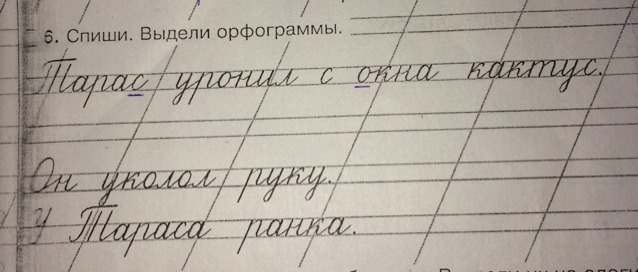 6. Спиши. Выдели орфограммы.
Тарас уронил с окна кактус.
Он уколол руку.
У Тараса ранка.